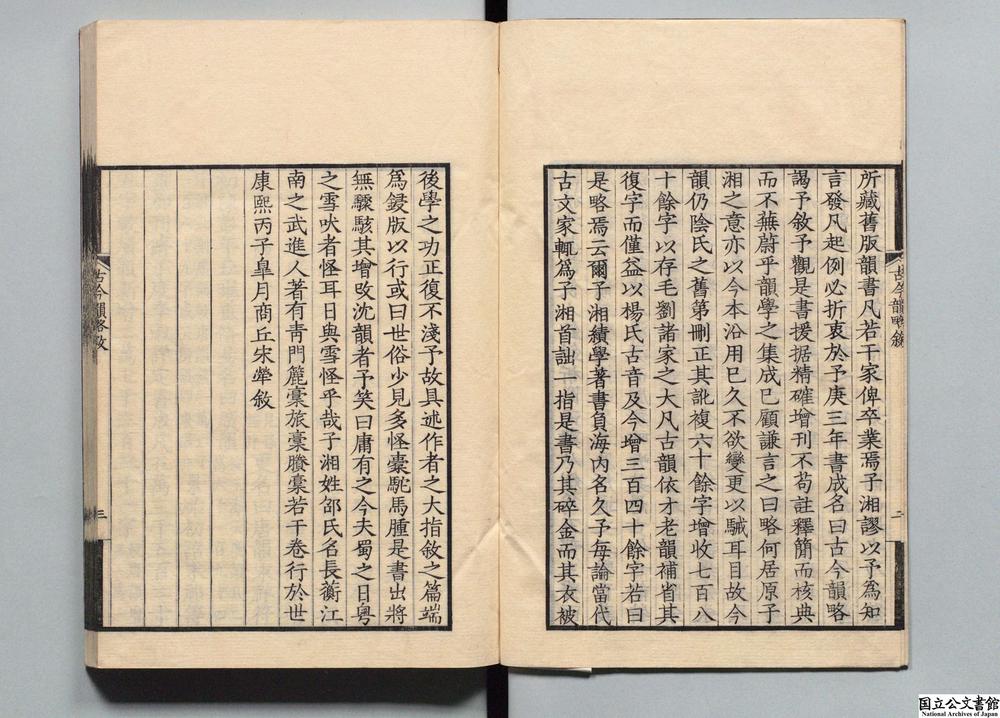 所藏舊版韻書凡若干家俾卒業焉子湘謬以予爲知
言發凡起例必折衷於予庚三年書成名曰古今韻略
謁予敘予觀是書援据精確增刊不苟註釋簡而核典
而不蕪蔚乎韻學之集成已顧謙言之曰略何居原子
湘之意亦以今本沿用巳久不欲變更以駴耳目故今
韻仍陰氏之舊第刪正其訛複六十餘字增收七百八
十餘字以存毛劉諸家之大凡古韻依才老韻補省其
復字而僅益以楊氏古音及今增三百四十餘字若曰
是略焉云爾子湘績學著書負海内名久予每論當代
古文家輒爲子湘首詘一指是書乃其碎金而其衣被
古今韻略敘
二
後學之功正復不淺予故具述作者之大指敘之篇端
爲鋟版以行或曰世俗少見多怪橐駝馬腫是書出將
無驟駭其增攺沈韻者予笑曰庸有之今夫蜀之日粤
之雪吠者怪耳日與雪怪乎哉子湘姓邵氏名長蘅江
南之武進人著有靑門簏稾旅稾賸稾若干卷行於世
康熙丙子皐月商丘宋犖敘
古今韻略敘
三
国立公文書館
National Archives of Japan